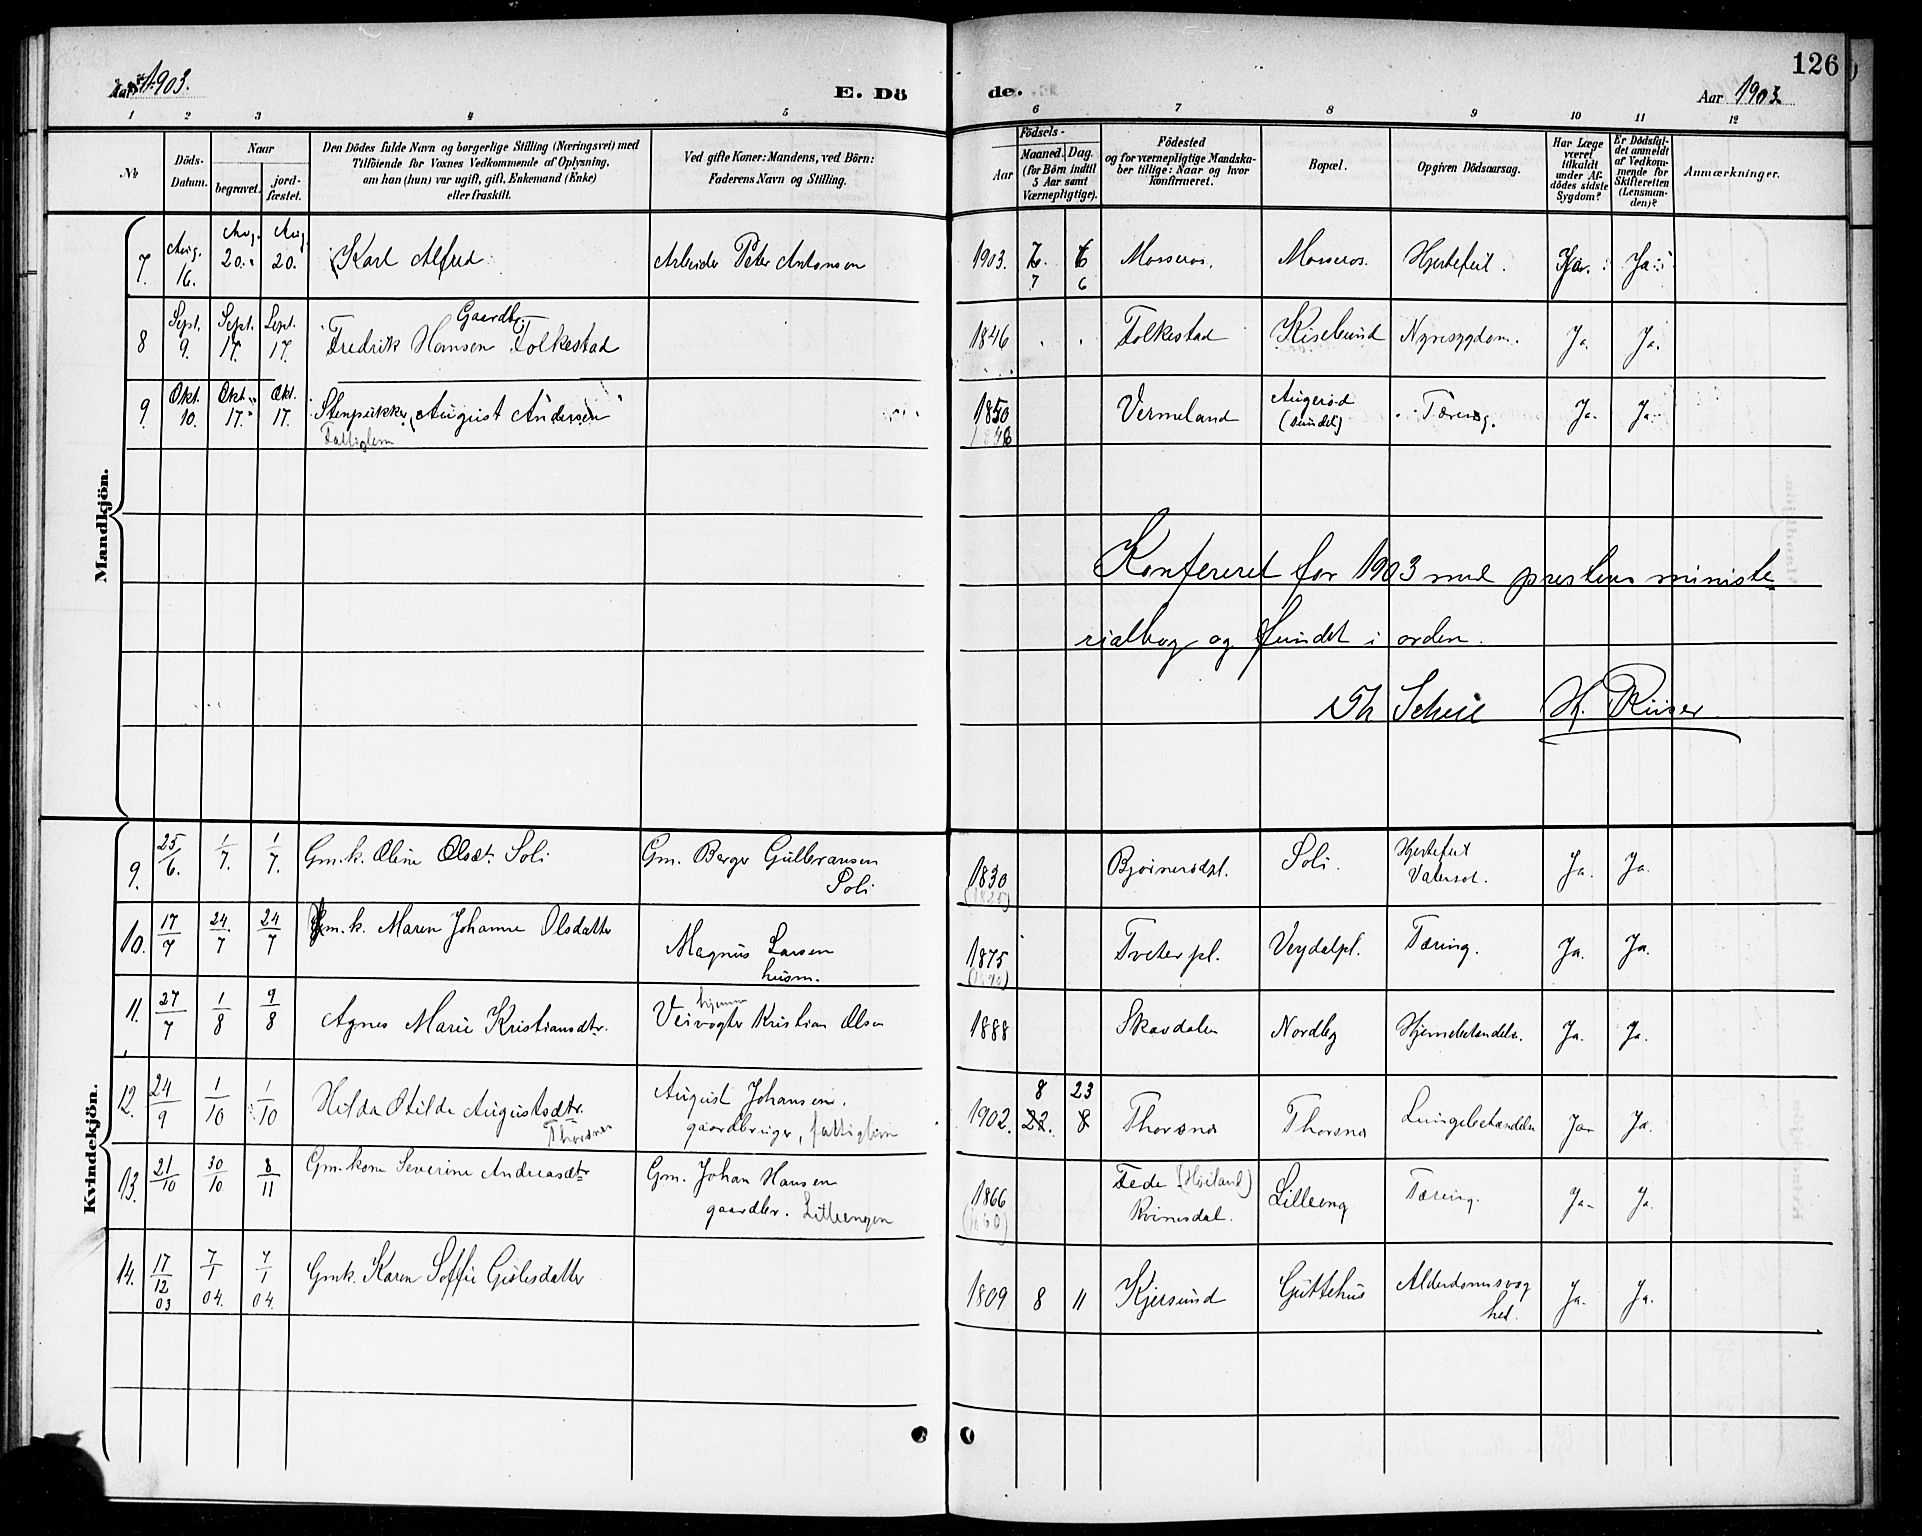 Aar 1903.
E. Dö
de.
126
Aar 1903.
1 2 3 4 5 6 7 8 9 10 11 12
No
Döds-
Datum.
Naar
begravet.
jord-
fæstet.
Den Dödes fulde Navn og borgerlige Stilling (Næringsvei) med
Tilföiende for Voxnes Vedkommende af Oplysning,
om han (hun) var ugift, gift, Enkemand (Enke)
eller fraskilt.
Ved gifte Koner: Mandens, ved Börn:
Faderens Navn og Stilling.
Födsels-
Aar
Maaned. Dag.
(for Börn indtil
5 Aar samt
Værnepligtige).
Födested
og for værnepligtige Mandska-
ber tillige: Naar og hvor
konfirmeret.
Bopæl.
Opgiven Dödsaarsag.
Har Læge
været
tilkaldt
under Af-
dödes sidste
Sygdom?
Er Dödsfal-
det anmeldt
af Vedkom-
mende for
Skifteretten
(Lensman-
den)?
Anmærkninger.
Mandkjön.
7. Aug. 16. Aug. 20. Aug. 20. Karl Alfred Arbeider Peter Antonsen 1903. 7 6 Mosseros. Mosseros. Hjertefeil. Ja. Ja.
8 Sept. 9. Sept. 17. Sept. 17. Gaardbr. Fredrik Hansen Folkestad 1846 Folkestad Kiselund Nyresygdom. Ja. Ja.
9 Okt. 10. Okt. 17. Okt. 17. Stenpukker August Andersen 1850 Vermeland Augerød Tæring. Ja. Ja.
Fattiglem 1846 (sundet)
Konfereret for 1903 med prestens ministe
rialbog og fundet i orden.
Th Scheie H. Riiser
Kvindekjön.
9. 25/6. 1/7. 1/7. Gm.k. Oline Olsdt. Soli Gm. Berger Gulbransen Soli 1830 (1825) Bjørnerødpl. Soli. Hjertefeil Vatersot. Ja. Ja.
10. 17/7 24/7 24/7 Gm.k. Maren Johanne Olsdatter Magnus Larsen husm. 1875 Tveterpl. Veydalpl. Tæring. Ja. Ja.
11. 27/7 1/8 9/8 Agnes Marie Kristiansdtr. Veivogter Kristian Olsen 1888 Skavdalen Nordby Hjernebetændelse. Ja. Ja.
12. 24/9 1/10 1/10 Hilda Otilde Augustsdtr. Thorsnes August Johansen. gaardbruger, fattiglem 1902. 8 23 22. 8 Thorsnes Thorsnes Lungebetændelse Ja. Ja.
13. 21/10 30/10 8/11 Gm.kone Severine Andreasdtr Gm. Johan Hansen gaardbr. Lilleengen 1866 (1860) Fede (Høiland) Kvinesdal. Lilleeng Tæring. Ja. Ja.
14. 17/12 03 7/1 04. 7/1 04. Gmk. Karen Soffie 1809 8 11 Kjersund Guttehus Alderdomssvag
hed. Ja. Ja.